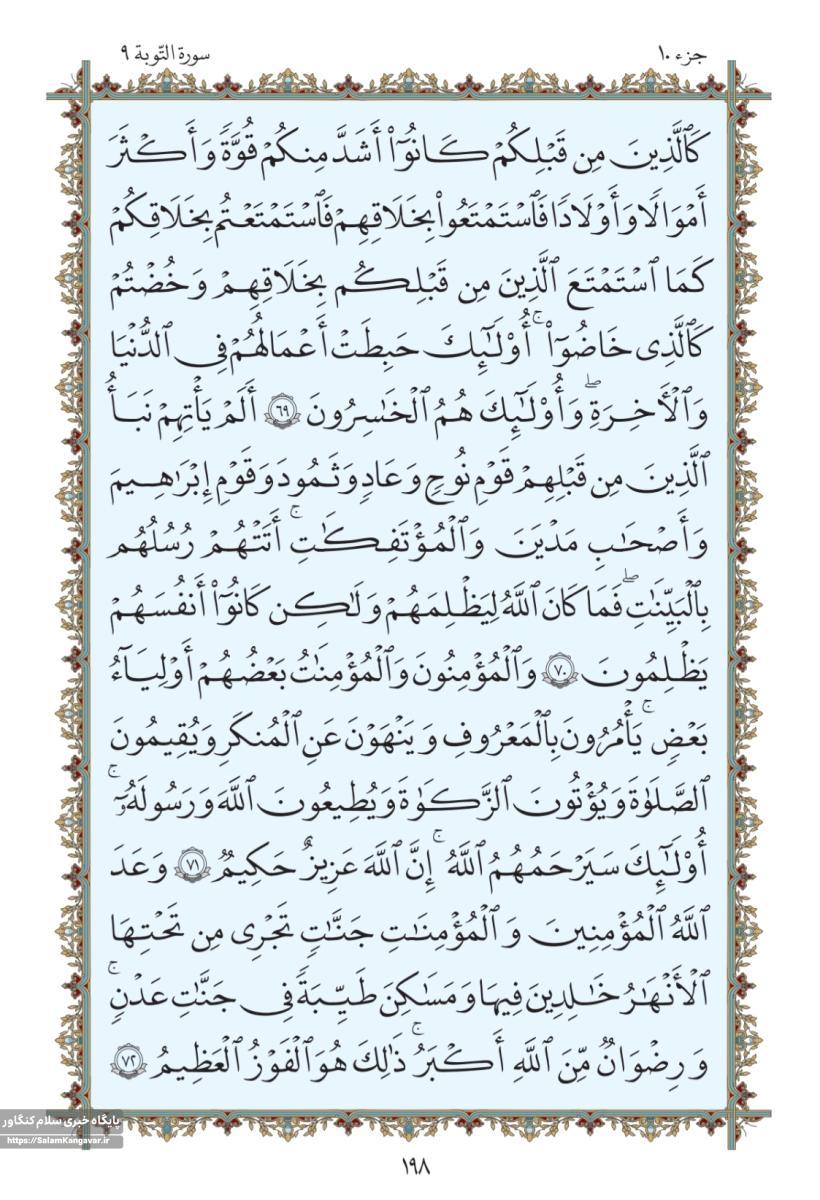 جزء ۱۰
سورة التّوبة ۹
كَٱلَّذِينَ مِن قَبْلِكُمْ كَانُوٓا۟ أَشَدَّ مِنكُمْ قُوَّةً وَأَكْثَرَ
أَمْوَالًا وَأَوْلَادًا فَٱسْتَمْتَعُوا۟ بِخَلَاقِهِمْ فَٱسْتَمْتَعْتُم بِخَلَاقِكُمْ
كَمَا ٱسْتَمْتَعَ ٱلَّذِينَ مِن قَبْلِكُم بِخَلَاقِهِمْ وَخُضْتُمْ
كَٱلَّذِى خَاضُوٓا۟ ۚ أُو۟لَـٰٓئِكَ حَبِطَتْ أَعْمَالُهُمْ فِى ٱلدُّنْيَا
وَٱلْأَخِرَةِ ۖ وَأُو۟لَـٰٓئِكَ هُمُ ٱلْخَـٰسِرُونَ ۶۹ أَلَمْ يَأْتِهِمْ نَبَأُ
ٱلَّذِينَ مِن قَبْلِهِمْ قَوْمِ نُوحٍ وَعَادٍ وَثَمُودَ وَقَوْمِ إِبْرَٰهِيمَ
وَأَصْحَـٰبِ مَدْيَنَ وَٱلْمُؤْتَفِكَـٰتِ ۚ أَتَتْهُمْ رُسُلُهُم
بِٱلْبَيِّنَـٰتِ ۖ فَمَا كَانَ ٱللَّهُ لِيَظْلِمَهُمْ وَلَـٰكِن كَانُوٓا۟ أَنفُسَهُمْ
يَظْلِمُونَ ۷۰ وَٱلْمُؤْمِنُونَ وَٱلْمُؤْمِنَـٰتُ بَعْضُهُمْ أَوْلِيَآءُ
بَعْضٍ ۚ يَأْمُرُونَ بِٱلْمَعْرُوفِ وَيَنْهَوْنَ عَنِ ٱلْمُنكَرِ وَيُقِيمُونَ
ٱلصَّلَوٰةَ وَيُؤْتُونَ ٱلزَّكَوٰةَ وَيُطِيعُونَ ٱللَّهَ وَرَسُولَهُۥٓ ۚ
أُو۟لَـٰٓئِكَ سَيَرْحَمُهُمُ ٱللَّهُ ۚ إِنَّ ٱللَّهَ عَزِيزٌ حَكِيمٌ ۷۱ وَعَدَ
ٱللَّهُ ٱلْمُؤْمِنِينَ وَٱلْمُؤْمِنَـٰتِ جَنَّـٰتٍ تَجْرِى مِن تَحْتِهَا
ٱلْأَنْهَـٰرُ خَـٰلِدِينَ فِيهَا وَمَسَـٰكِنَ طَيِّبَةً فِى جَنَّـٰتِ عَدْنٍ ۚ
وَرِضْوَانٌ مِّنَ ٱللَّهِ أَكْبَرُ ۚ ذَٰلِكَ هُوَ ٱلْفَوْزُ ٱلْعَظِيمُ ۷۲
پایگاه خبری سلام کنگاور
https://SalamKangavar.ir
۱۹۸